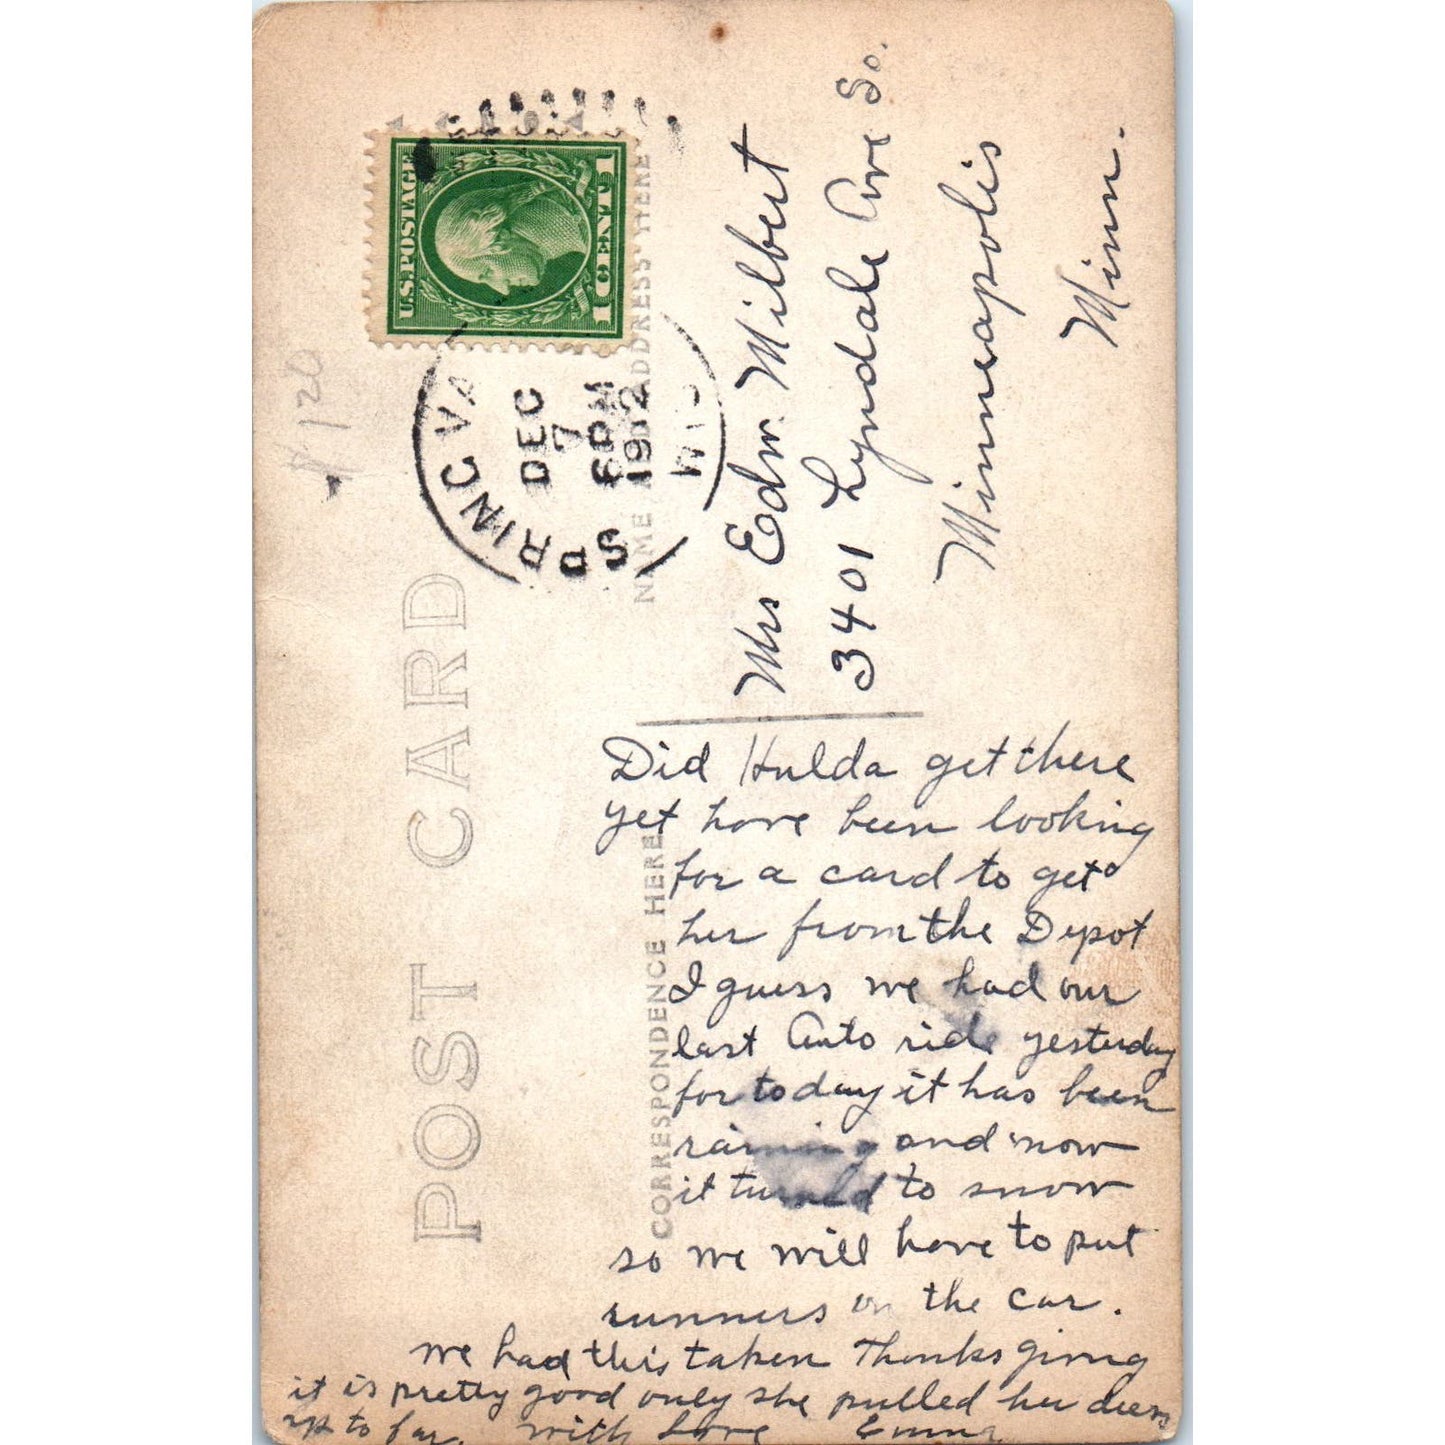 POST CARD
$1.20
U.S. POSTAGE
1 CENT 1
SPRING VA
DEC
7
6 PM
1912
WIS
CORRESPONDENCE HERE
NAME AND ADDRESS HERE
Mrs Edw. Wilbert
3401 Lyndale Ave So.
Minneapolis
Minn.
Did Hulda get there
yet have been looking
for a card to get
her from the Depot
I guess we had our
last Auto ride yesterday
for today it has been
raining and now
it turned to snow
so we will have to put
runners on the car.
we had this taken Thanksgiving
it is pretty good only she pulled her dress
up to far. With Love Emma